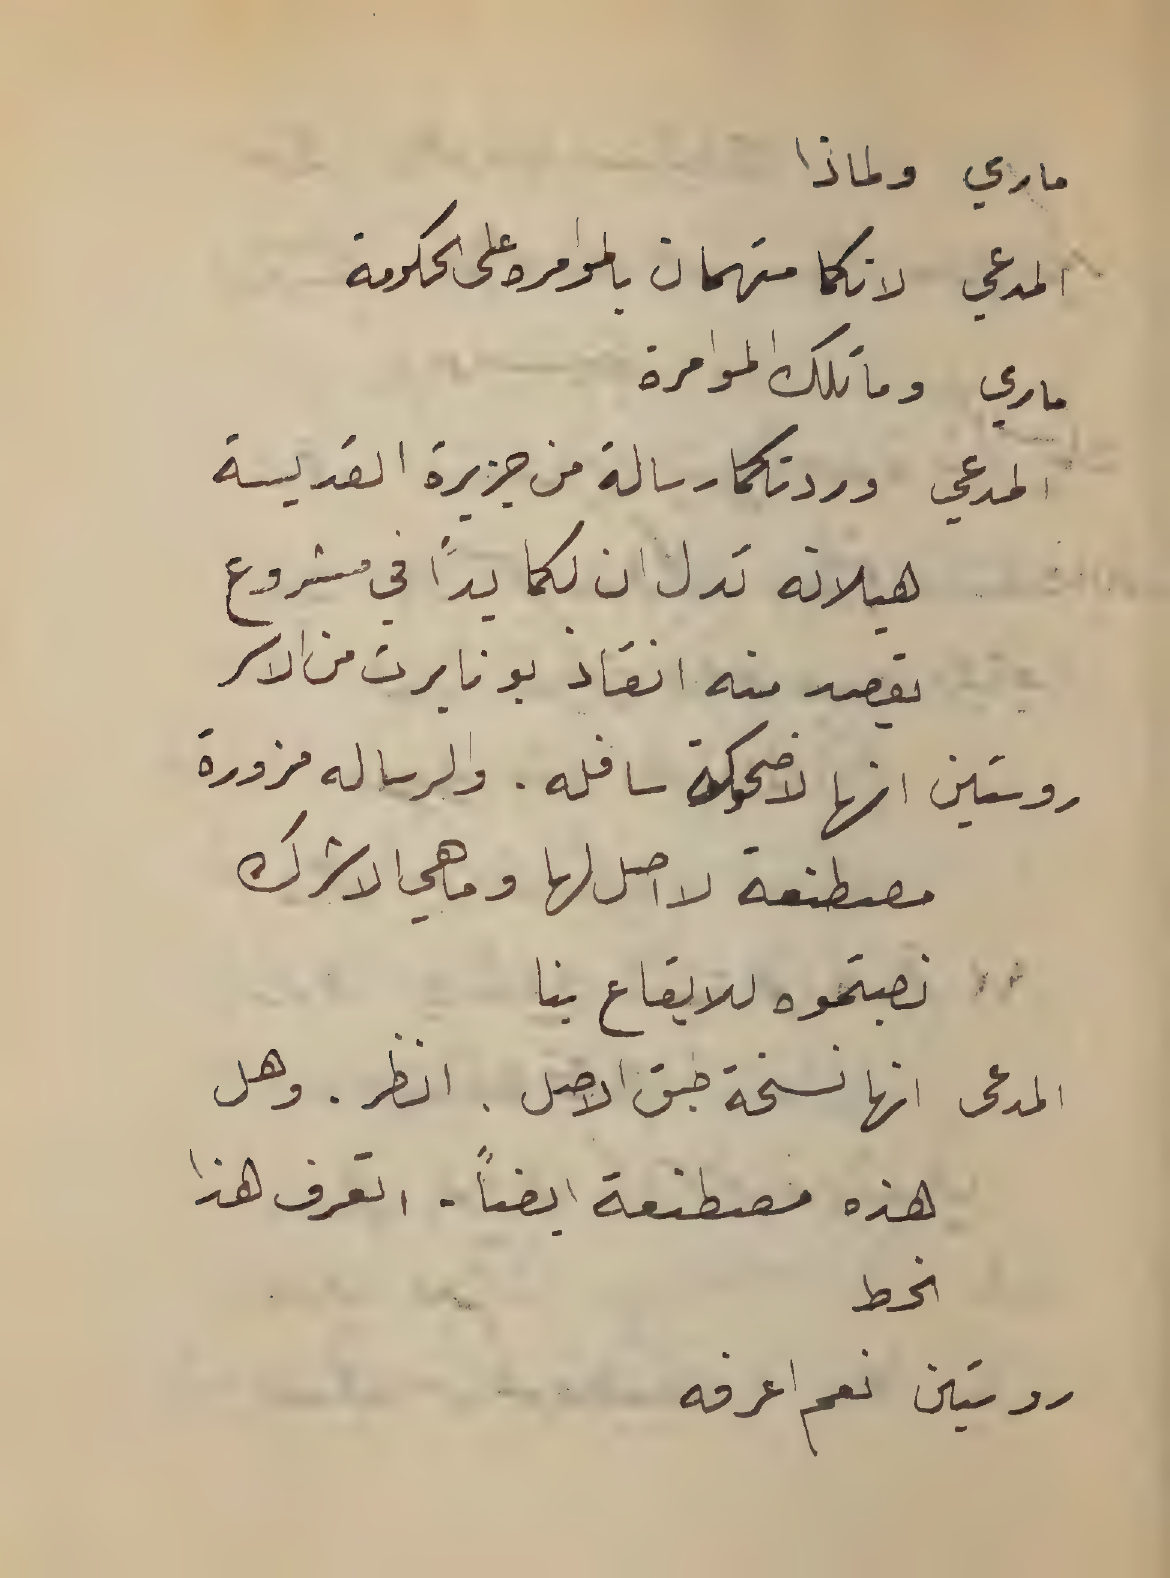 ماري ولماذا
المدعي لانكما متهمان بالموامره على الحكومة
ماري وما تلك الموامرة
المدعي وردتكما رسالة من جزيرة القديسة
هيلانه تدل ان لكما يداً في مشروع
يقصد منه انقاذ بونابرت من الاسر
روستين انها لاضحوكة سافله . والرساله مزورة
مصطنعة لا اصل لها وما هي الا شرك
نصبتموه للايقاع بنا
المدعى انها نسخة طبق الاصل . انظر . وهل
هذه مصطنعة ايضاً . اتعرف هذا
الخط
روستين نعم اعرفه